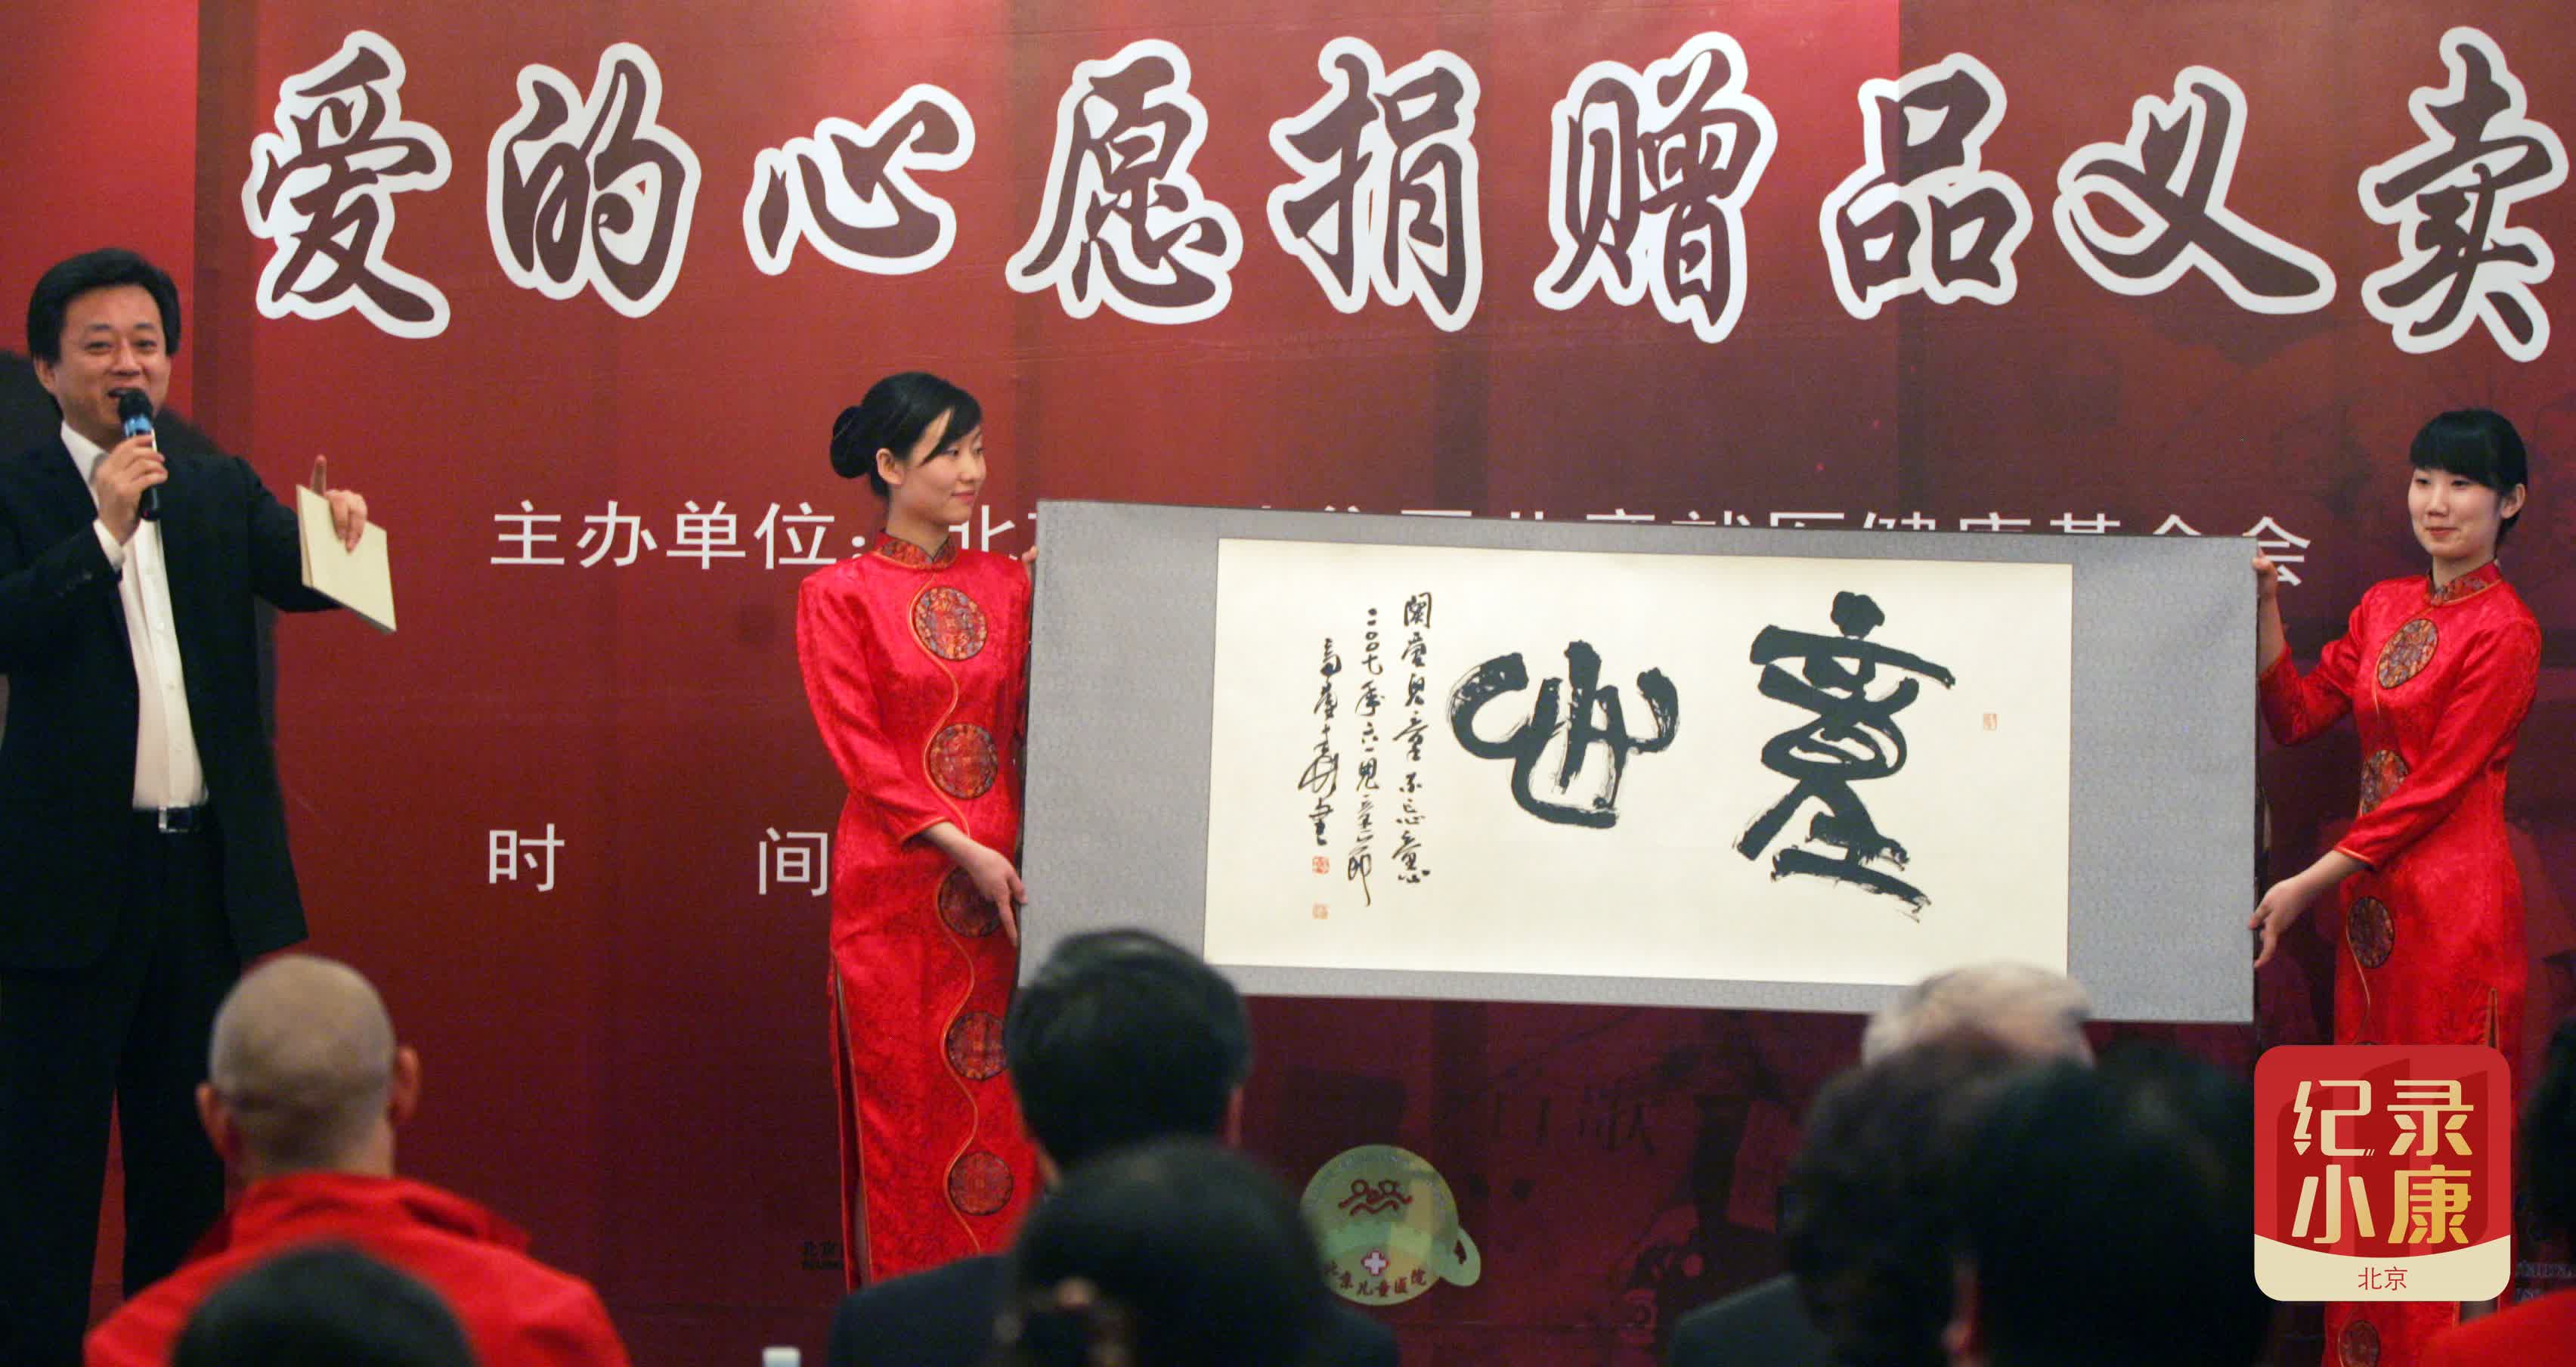 爱的心愿捐赠品义卖
主办单位：北
儿童就医健康基金会
时 间
童心
关爱儿童不忘童心
二〇〇七年六一儿童节
北京儿童医院
纪录
小康
北京